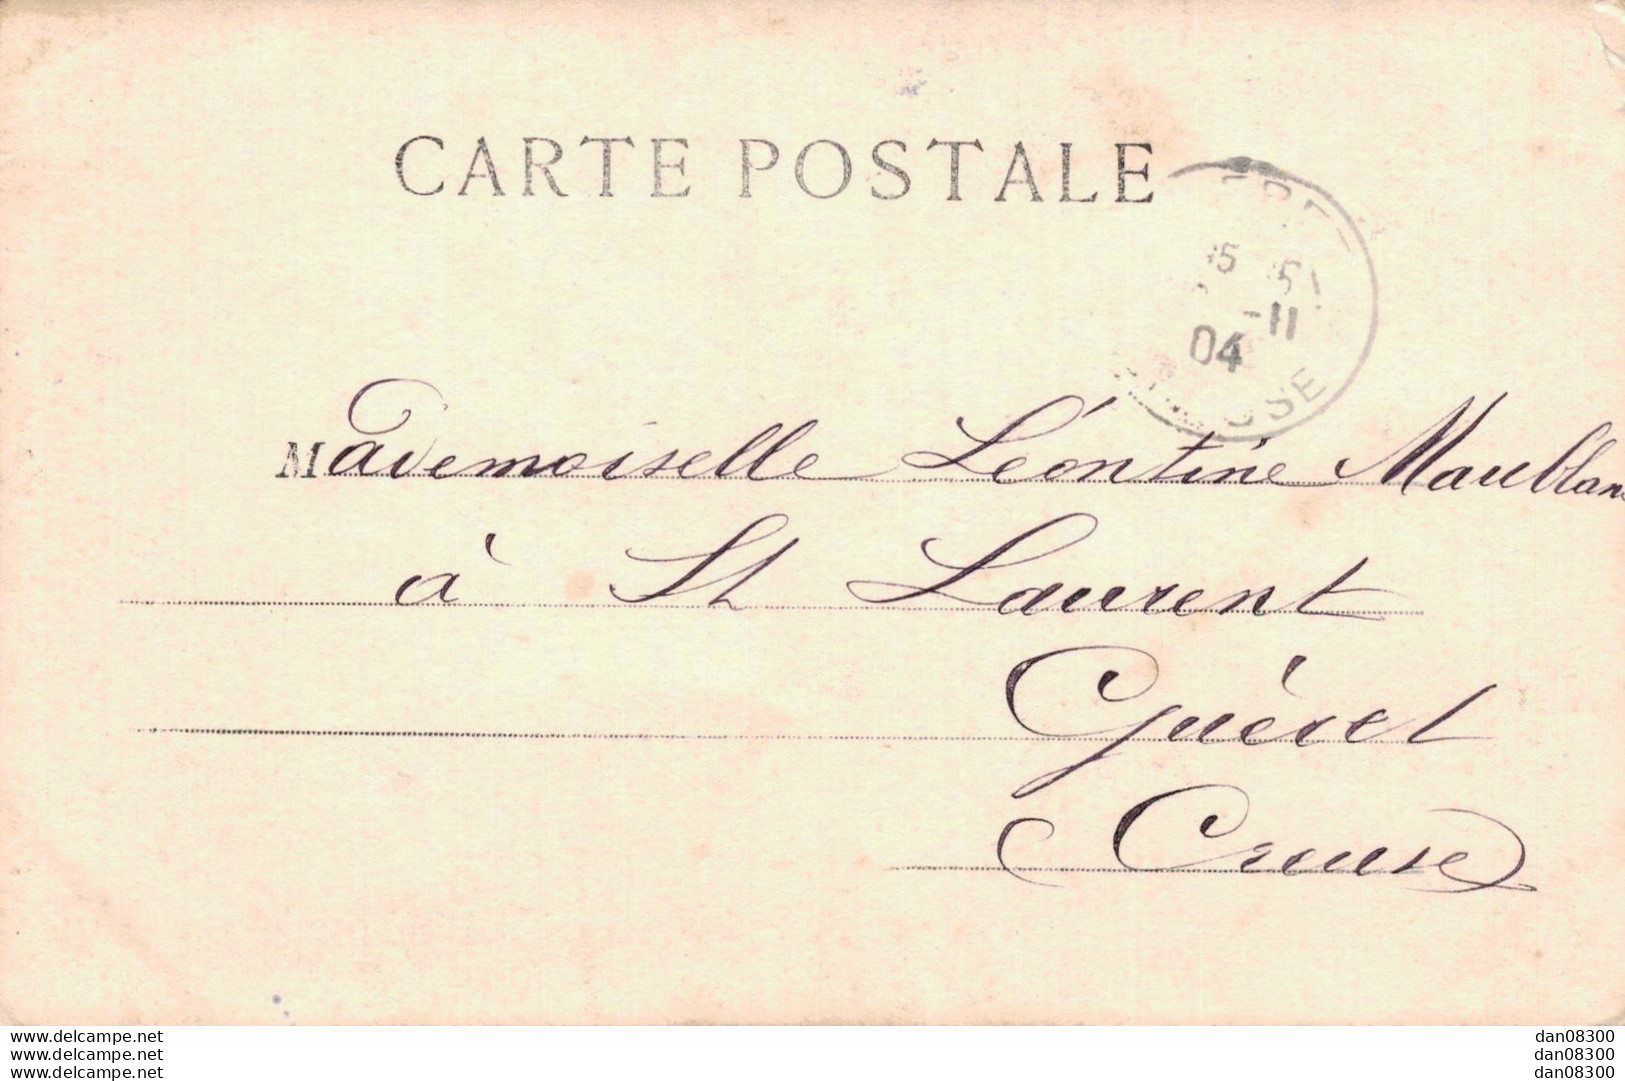 CARTE POSTALE
5 5
-11
04
Mademoiselle Léontine Maublanc
à St Laurent
Guéret
Creuse
www.delcampe.net
www.delcampe.net
www.delcampe.net
dan08300
dan08300
dan08300